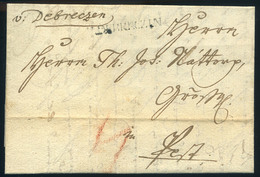 v: Debreczen
DEBRETZIN
Herrn
Herrn Th. Jos: Nattorp
Pest.